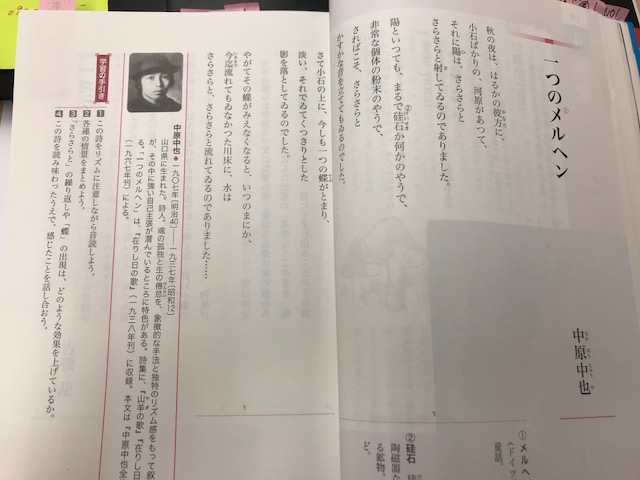 一つのメルヘン①
中原中也
秋の夜は、はるかの彼方に、
小石ばかりの、河原があつて、
それに陽は、さらさらと
さらさらと射してゐるのでありました。
陽といつても、まるで硅石か何かのやうで、
非常な個体の粉末のやうで、
さればこそ、さらさらと
かすかな音を立ててもゐるのでした。
① メルヘ
（ドイツ
童話。
② 硅石
陶磁器な
る鉱物。
ど。
5
さて小石の上に、今しも一つの蝶がとまり、
淡い、それでゐてくつきりとした
影を落としてゐるのでした。
やがてその蝶がみえなくなると、いつのまにか、
今迄流れてもゐなかつた川床に、水は
さらさらと、さらさらと流れてゐるのでありました……
5
中原中也◆一九〇七［明治40］―一九三七年［昭和12］
山口県に生まれた。詩人。魂の孤独と生の倦怠を、象徴的な手法と独特のリズム感をもって叙
が、その中に強い自己主張が潜んでいるところに特色がある。詩集に、『山羊の歌』『在りし日
る。「一つのメルヘン」は、『在りし日の歌』（一九三八年刊）に収録。本文は『中原中也全
（一九六七年刊）による。
学習の手引き
1 この詩をリズムに注意しながら音読しよう。
2 各連の情景をまとめよう。
3 「さらさらと」の繰り返しや「蝶」の出現は、どのような効果を上げているか。
4 この詩を読み味わったうえで、感じたことを話し合おう。